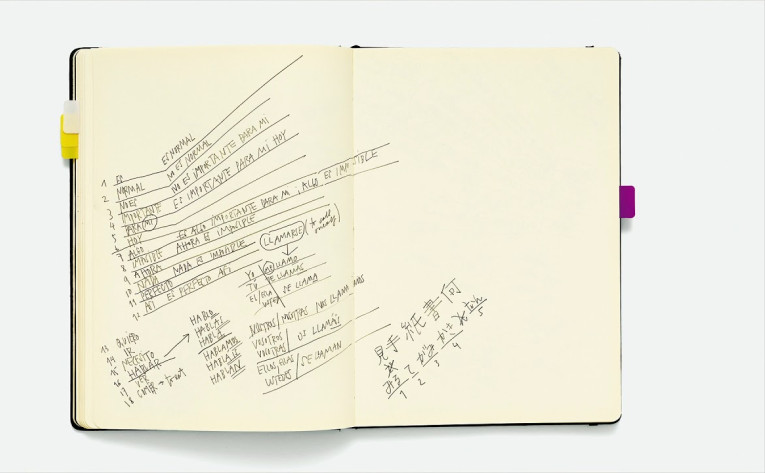 1 ES ES NORMAL
2 NORMAL NO ES NORMAL
3 NO ES NO ES IMPORTANTE PARA MI
4 IMPORTANTE ES IMPORTANTE PARA MI HOY
5 PARA MI
6 HOY ES ALGO IMPORTANTE PARA MI, ALGO ES IMPOSIBLE
7 ALGO AHORA ES IMPOSIBLE
8 IMPOSIBLE
9 AHORA NADA ES IMPOSIBLE
10 NADA
11 PERFECTO ES PERFECTO ASÍ
12 ASÍ
LLAMARSE (to call oneself)
YO ME LLAMO
TÚ TE LLAMAS
EL/ELLA SE LLAMA
USTED
NOSOTROS/NOSOTRAS NOS LLAMAMOS
VOSOTROS
VOSOTRAS / OS LLAMÁIS
ELLOS, ELLAS / SE LLAMAN
USTEDES
13 QUIERO
14 IR
15 NECESITO
16 HABLAR
17 VER
18 COMER → to eat
HABLO
HABLAS
HABLA
HABLAMOS
HABLÁIS
HABLAN
見手紙書何
みる て がみ かき
1 2 3 4 5